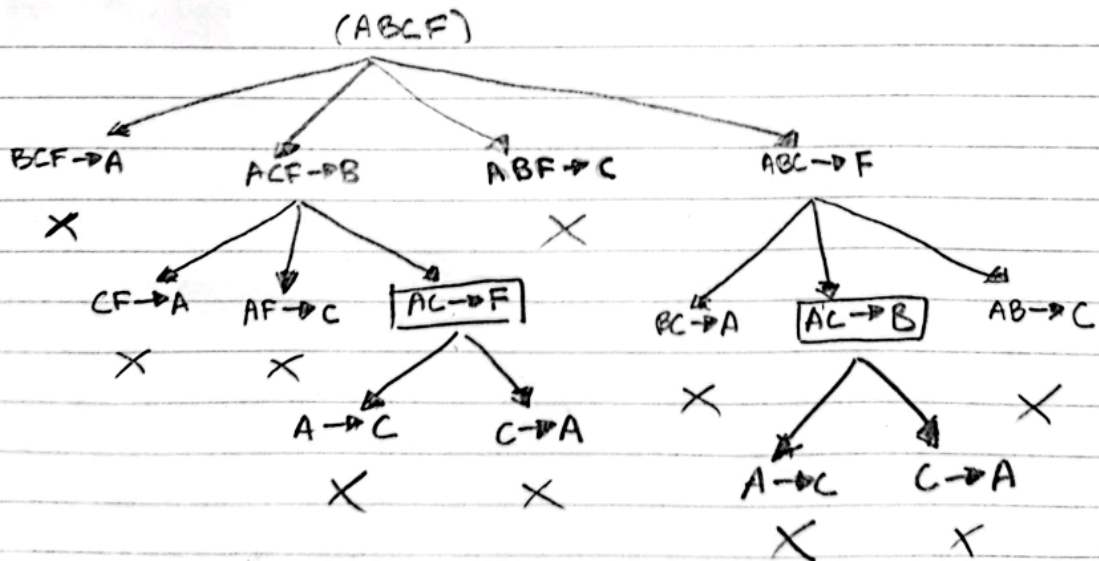 (ABCF)
BCF→A ACF→B ABF→C ABC→F
X X
CF→A AF→C AC→F BC→A AC→B AB→C
X X X X
A→C C→A
X X
A→C C→A
X X